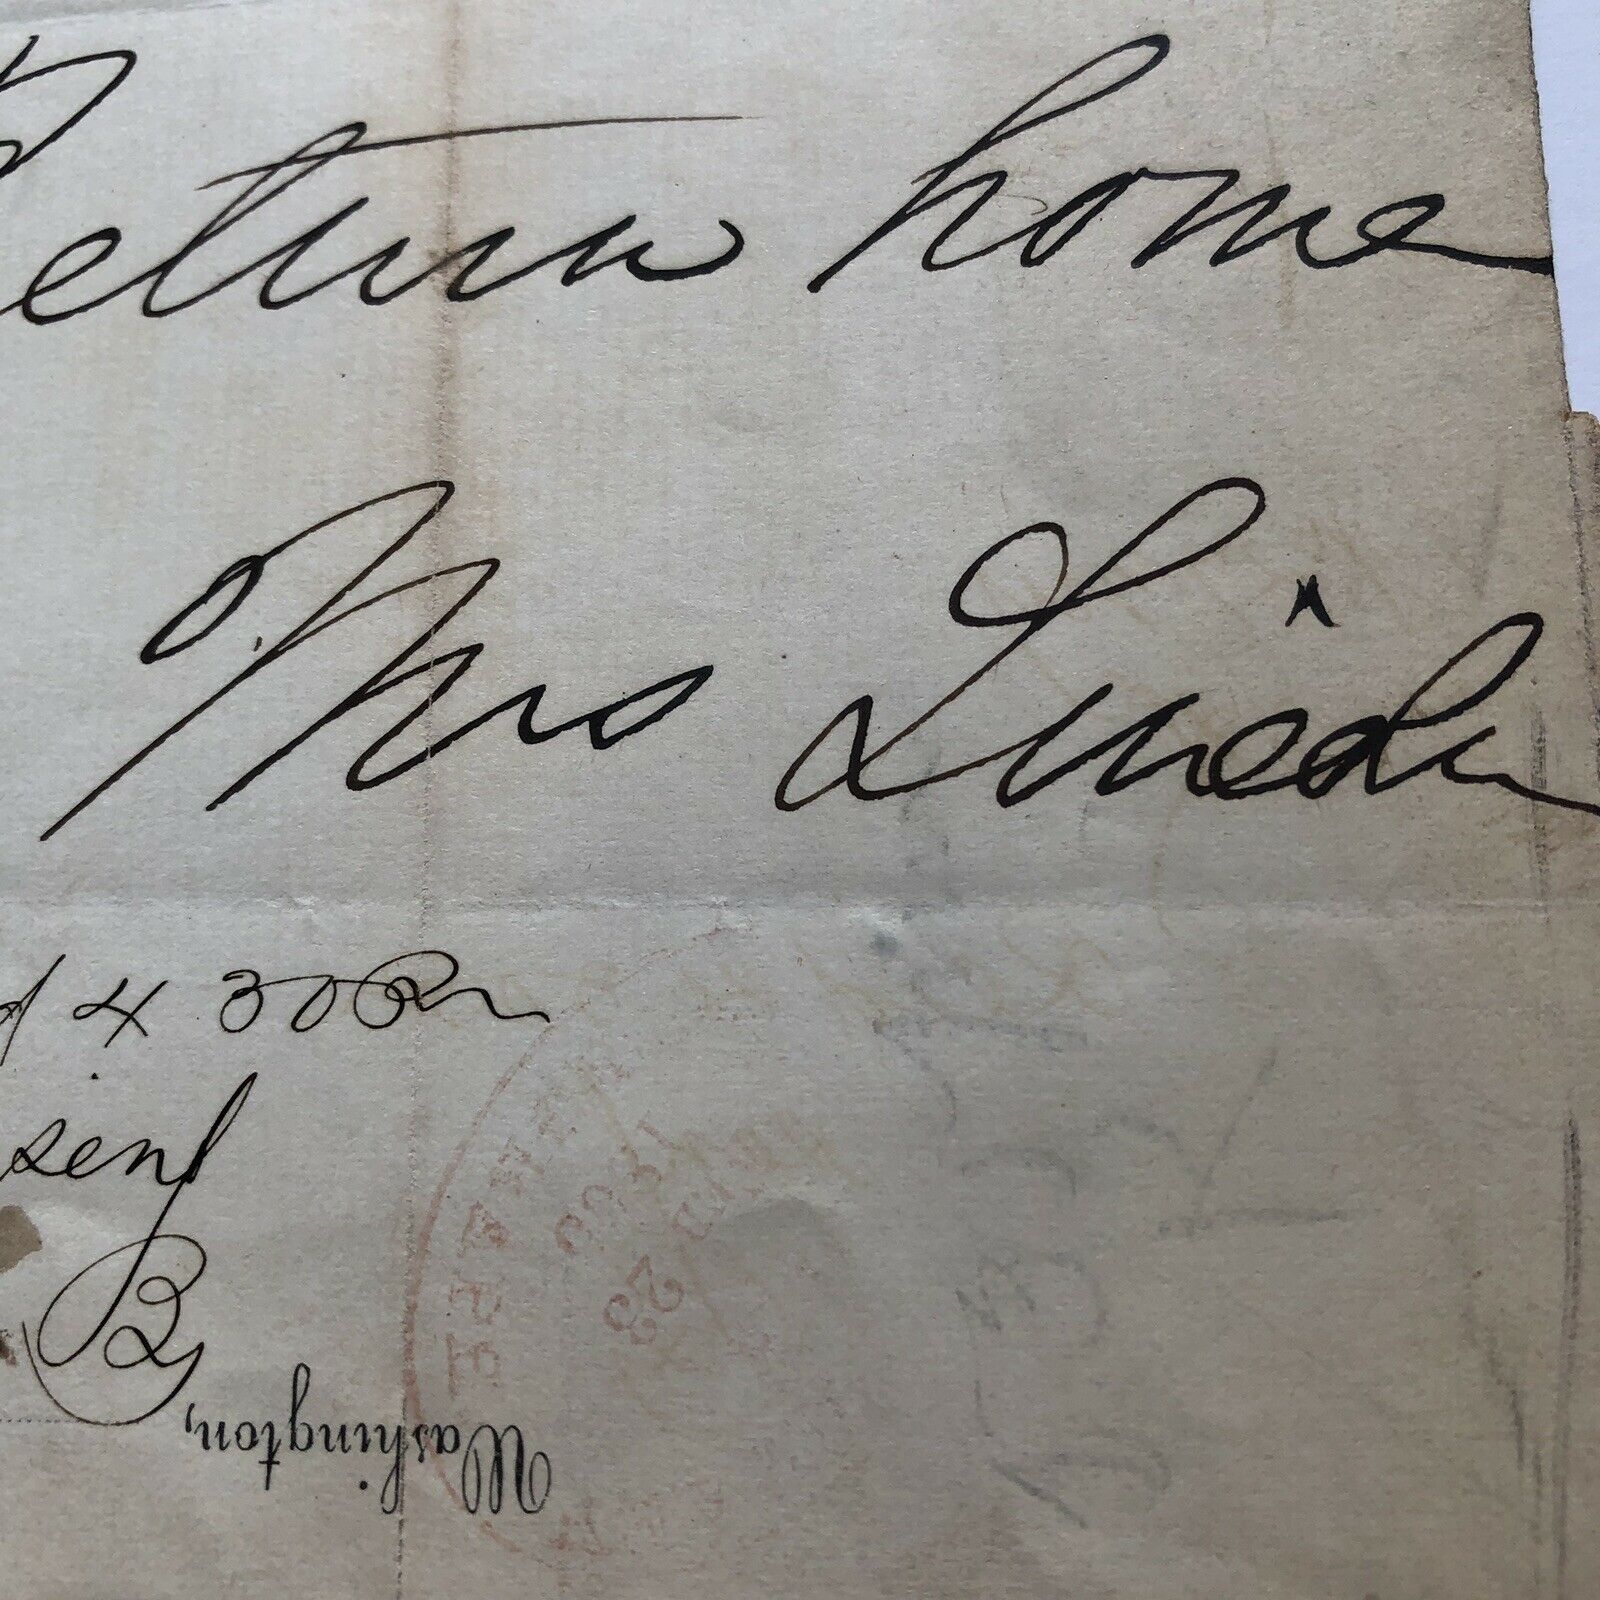 Return home
Mrs Lincoln
4 30 Pm
sent
B
Washington,
23